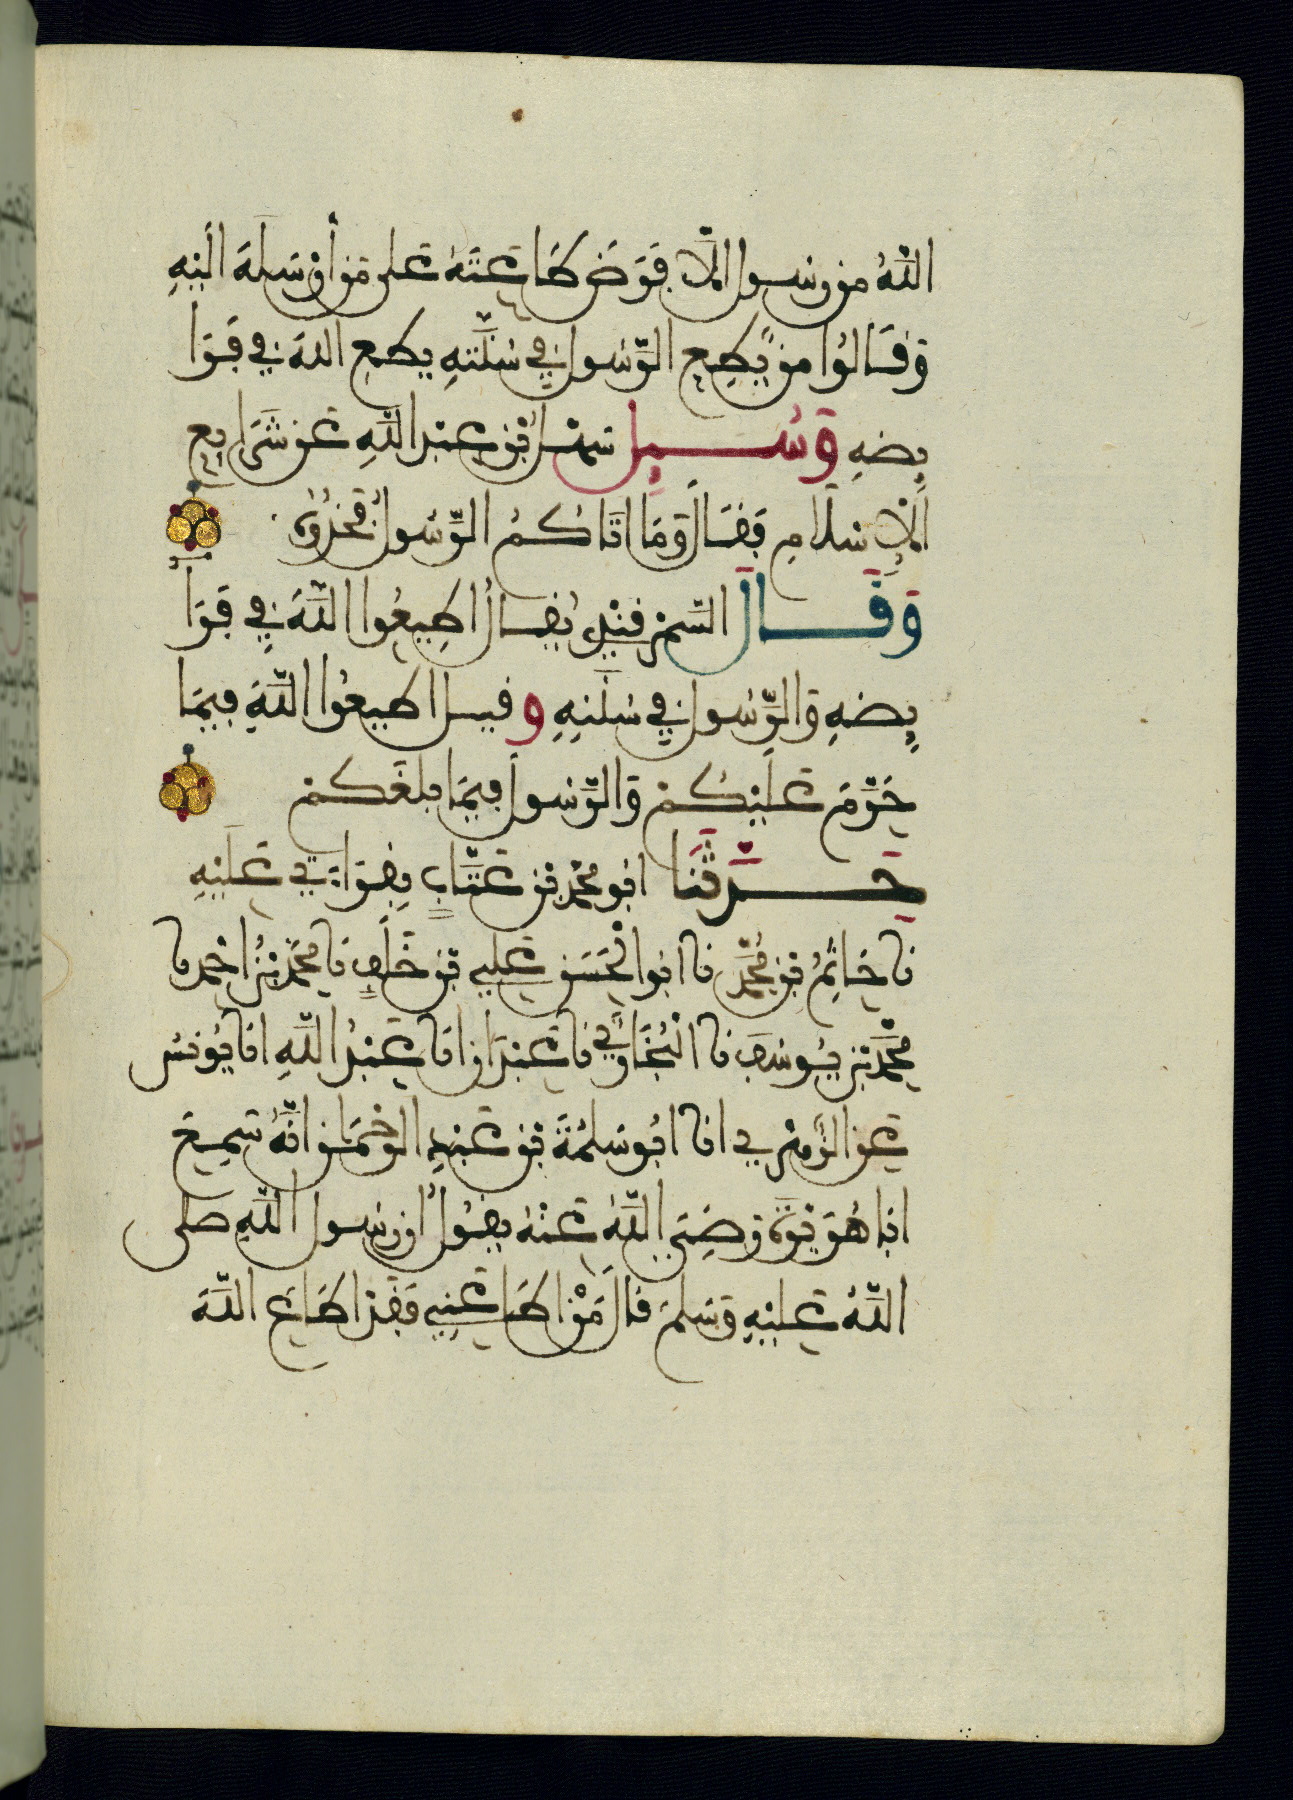 اللّٰهُ من رسول الّا فَرَضَ طَاعَتَهُ عَلى مَن أرْسَلَهَ الَيْهِ
وَقَالُوا من يُطِعِ الرَّسُولَ فِي سُنَّتِهِ يطعِ اللهَ فِي فَرَا
يِضِهِ وَسُيِلَ سَهْلُ بْنُ عَبْدِ اللَّهِ عَن شَرَايِعِ
الْإِسْلَامِ فَقَالَ وَمَا اتَاكُمُ الرَّسُولُ فَخُذُوهُ
وَقَالَ السَّمَرْقَنْدِي يُقَالُ اطِيعُوا اللَّهَ فِي فَرَا
يِضِهِ وَالرَّسُولَ فِي سُنَّتِهِ و قيل اطيعُوا اللَّهَ فِيمَا
حَرَّمَ عَلَيْكُمْ وَالرَّسُولَ فِيمَا بلغَكمْ
حَدَّثَنَا ابُو محمّد بْن عَتَّابٍ بِقِرَاءَتِي عَلَيْهِ
نا حَاتِمُ بْن مُحَمَّدٍ نا ابُوا الْحَسَنِ عَلِي بْن خَلَفٍ نا مُحَمَّدُ بْنُ احْمد نا
مُحَمَّد بْن يُوسُفَ نا الْبُخَارِي نا عَبْدَانُ انا عَبْدُ اللَّهِ انا يُونسُ
عَن الزُّهْرِي انا ابُو سَلَمَةَ بْن عَبْدِ الرَّحْمَان انَّهُ سَمِعَ
ابا هُرَيْرَةَ رَضِيَ اللَّهُ عَنْهُ يقُولُ ان رسول اللَّهِ صلى
اللَّهُ عَلَيْهِ وَسَلَّمَ قال مَنْ اطَاعَنِي فَقَدْ اطَاعَ اللَّهَ